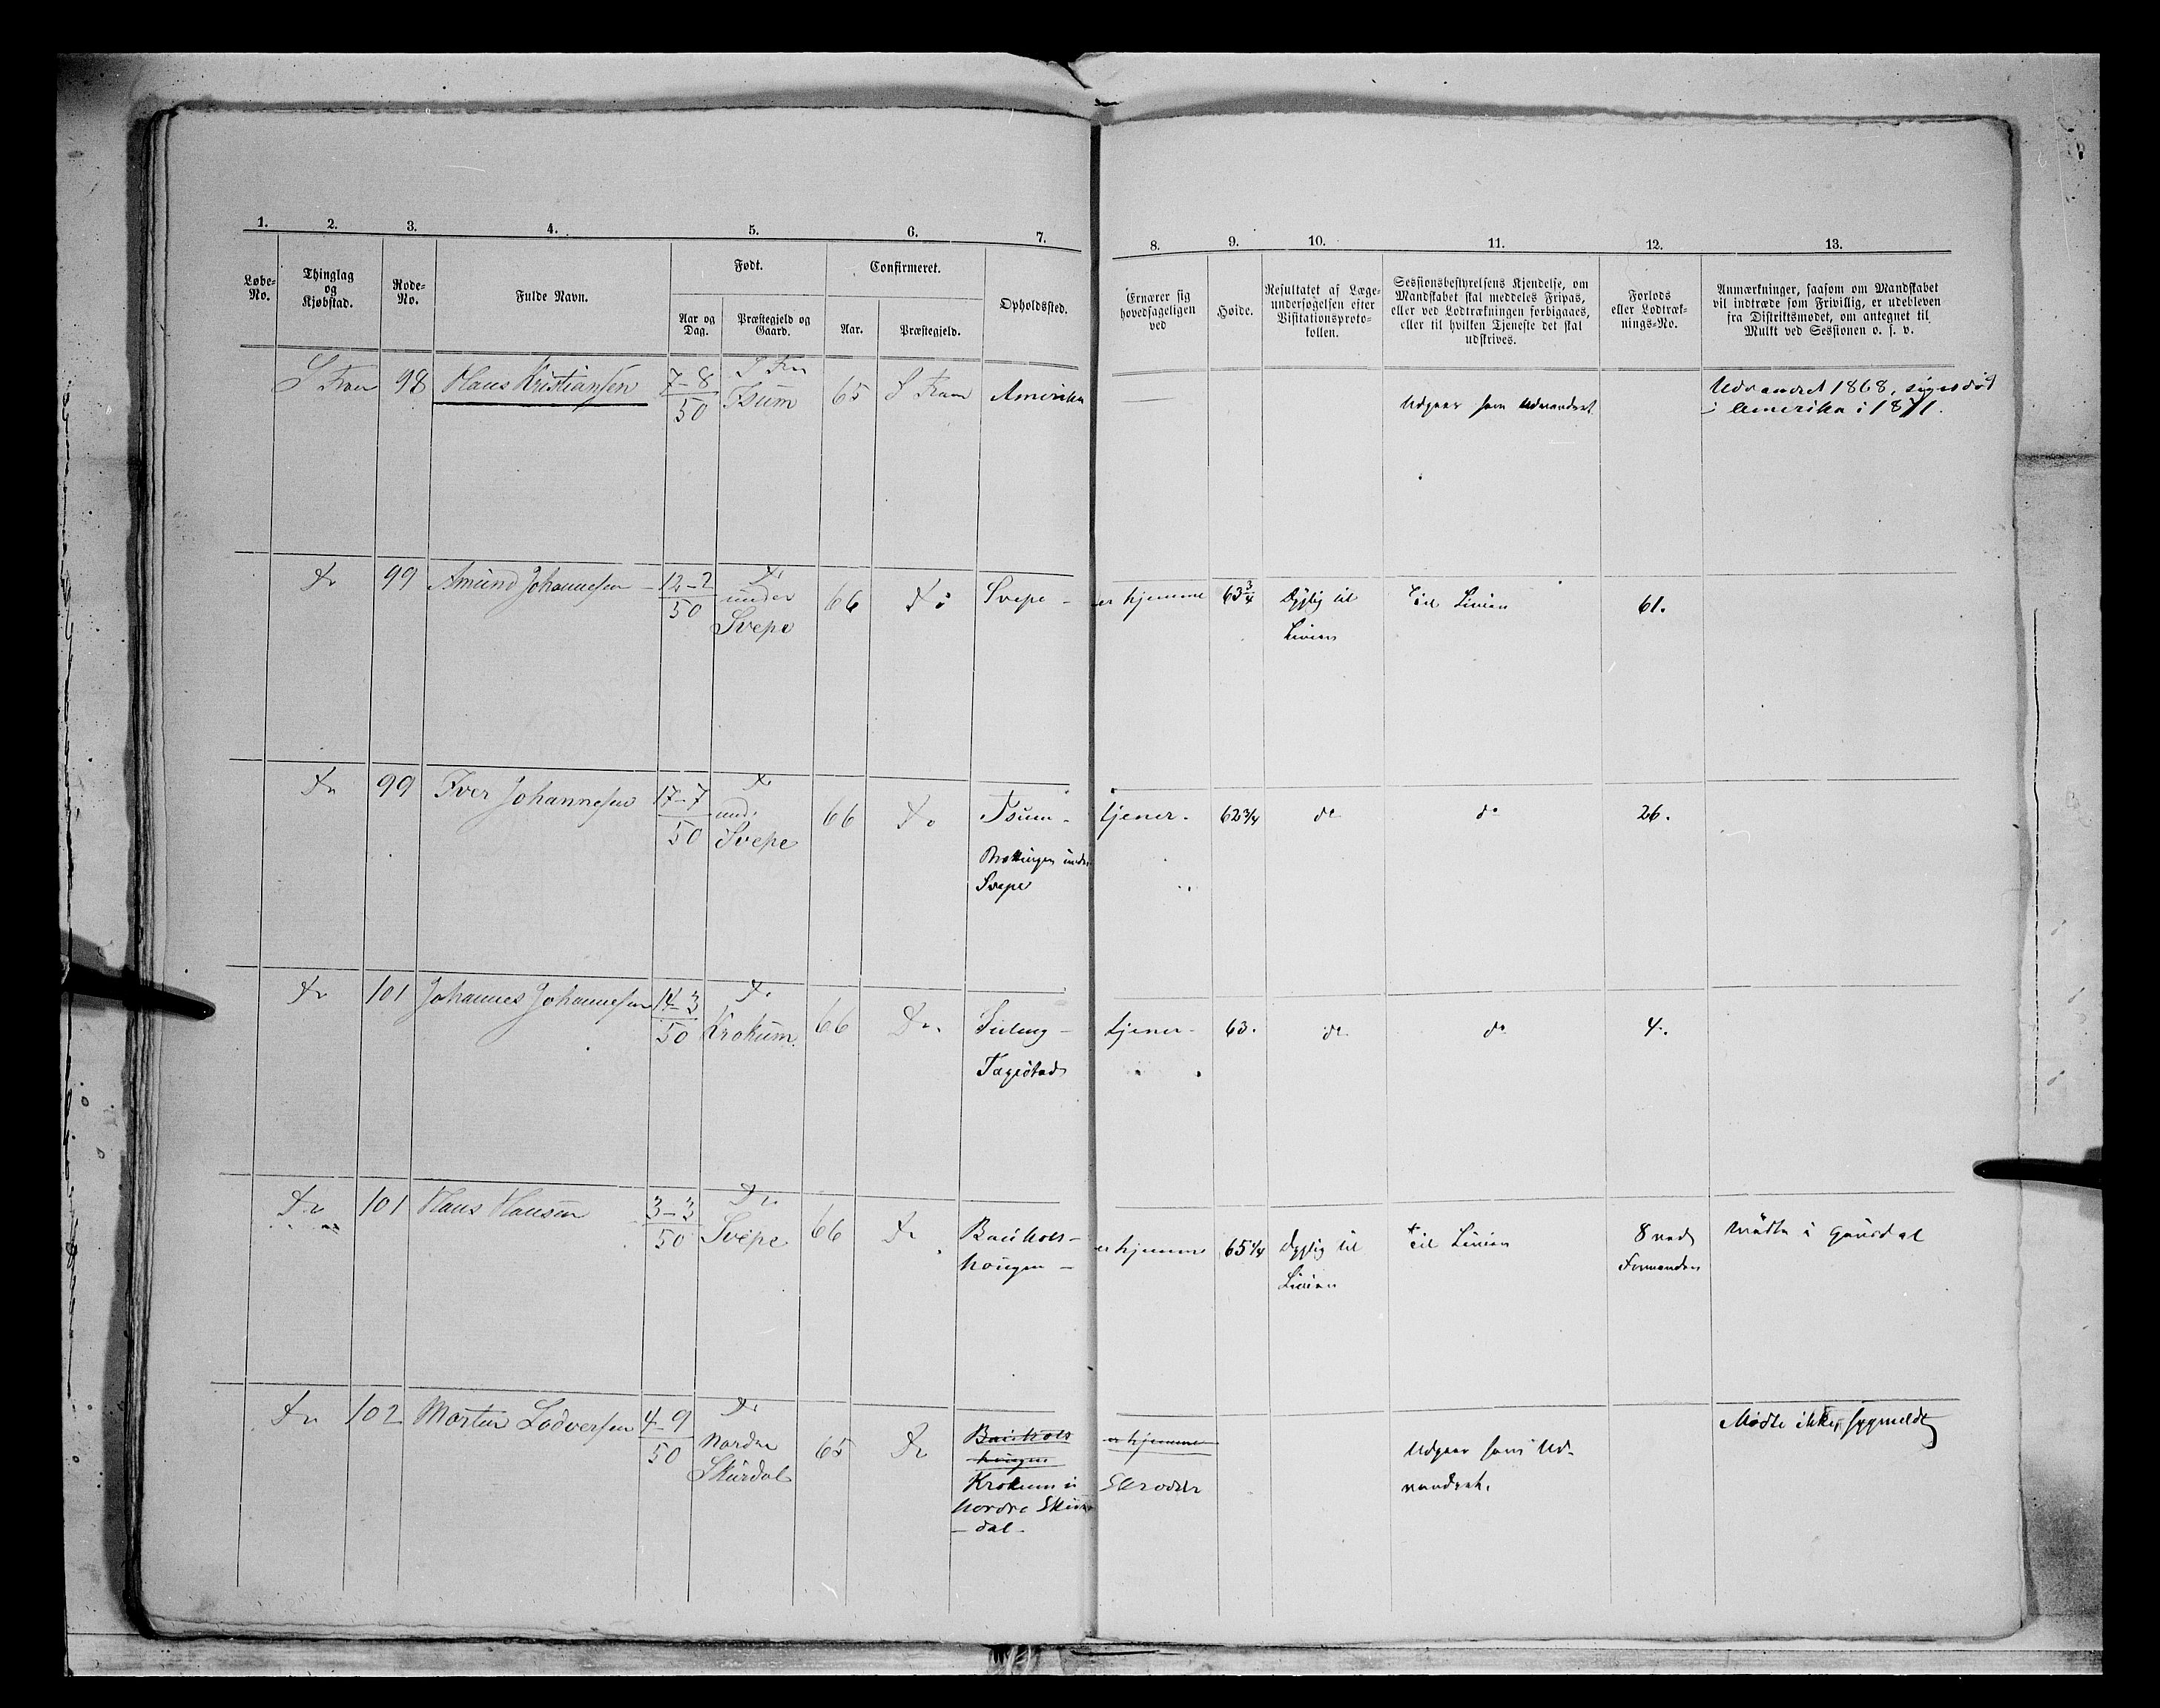 1. 2. 3. 4. 5. 6. 7. 8. 9. 10. 11. 12. 13.
Løbe-No.
Thinglag og Kjøbstad.
Rode-No.
Fulde Navn.
Født.
Aar og Dag.
Præstegjeld og Gaard.
Confirmeret.
Aar.
Præstegjeld.
Opholdssted.
Ernærer sig hovedsageligen ved
Høide.
Resultatet af Læge-undersøgelsen efter Visitationsproto-kollen.
Sessionsbestyrelsens Kjendelse, om Mandskabet skal meddeles Fripas, eller ved Lodtrækningen forbigaaes, eller til hvilken Tjeneste det skal udskrives.
Forlods eller Lodtræk-nings-No.
Anmærkninger, saasom om Mandskabet vil indtræde som Frivillig, er udebleven fra Distriktsmødet, om antegnet til Mulkt ved Sessionen o. s. v.
S Fron 98 Hans Kristiansen 7-8/50 S Fr Isum 65 S Fron Amerika — Udgaar som Udvandret Udvandret 1868, siges død
i Amerika i 1871.
Do 99 Amund Johannesen 12-2/50 Do under Svepe 66 Do Svepe - er hjemme 63 3/4 Dygtig til Linien Til Linien 61.
Do 99 Iver Johannesen 17-7/50 Do und. Svepe 66 Do Isum - tjener - 62 3/4 do do 26.
under
Svepe
Do 101 Johannes Johannesen 14-3/50 Do Krokum 66 Do - tjener - 63. do do 4.
Tagestad
Do 101 Hans Hansen 3-3/50 Do Svepe 66 Do er hjemme 65 1/4 Dygtig til Linien Til Linien 8 ved Formanden Mødte i Gausdal
haugen -
Do 102 Morten Lodversen 4-9/50 Do Nordre Skurdal 65 Do er hjemme Udgaar som Ud-
vandret. Mødte ikke, sygmeldt
haugen
Krokum i Skrædder
Nordre Skur
- dal -